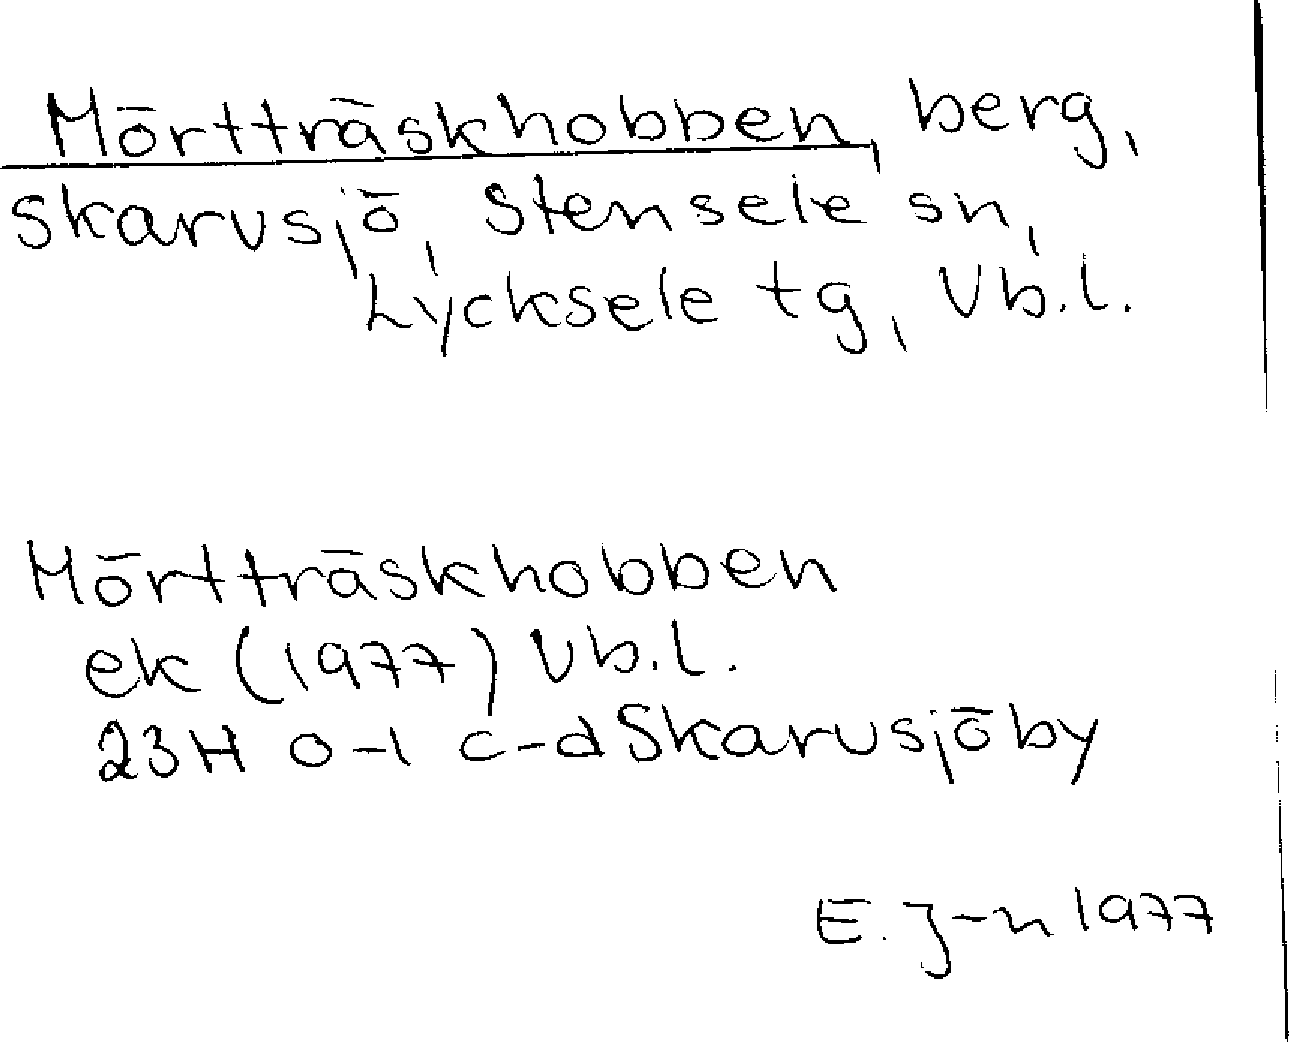 Mörtträskhobben, berg,
Skarvsjö, Stensele sn,
Lycksele tg, Vb.l.
Mörtträskhobben
ek (1977) Vb.l.
23H 0-1 c-d Skarvsjöby
E. J-n 1977